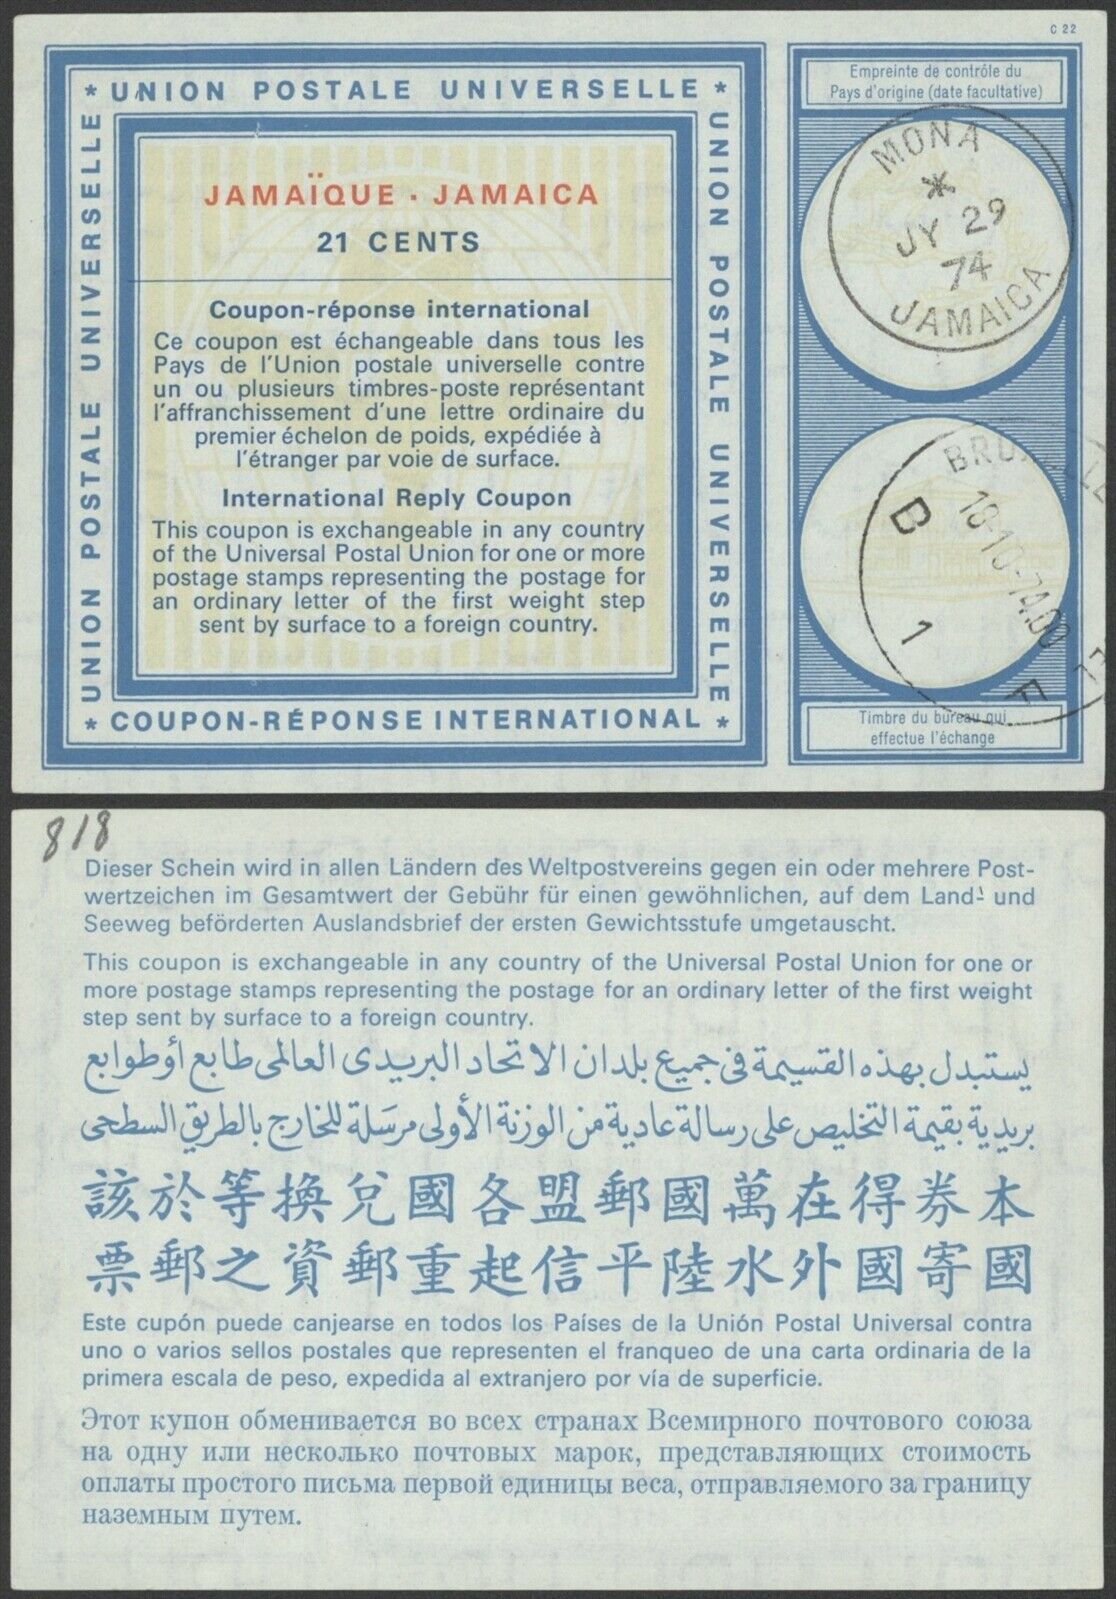 C 22
* UNION POSTALE UNIVERSELLE *
UNION POSTALE UNIVERSELLE
UNION POSTALE UNIVERSELLE
JAMAÏQUE · JAMAICA
21 CENTS
Coupon-réponse international
Ce coupon est échangeable dans tous les
Pays de l'Union postale universelle contre
un ou plusieurs timbres-poste représentant
l'affranchissement d'une lettre ordinaire du
premier échelon de poids, expédiée à
l'étranger par voie de surface.
International Reply Coupon
This coupon is exchangeable in any country
of the Universal Postal Union for one or more
postage stamps representing the postage for
an ordinary letter of the first weight step
sent by surface to a foreign country.
* COUPON-RÉPONSE INTERNATIONAL *
Empreinte de contrôle du
Pays d'origine (date facultative)
MONA
*
JY 29
74
JAMAICA
B 1
Timbre du bureau qui
effectue l'échange
818
Dieser Schein wird in allen Ländern des Weltpostvereins gegen ein oder mehrere Post-
wertzeichen im Gesamtwert der Gebühr für einen gewöhnlichen, auf dem Land- und
Seeweg beförderten Auslandsbrief der ersten Gewichtsstufe umgetauscht.
This coupon is exchangeable in any country of the Universal Postal Union for one or
more postage stamps representing the postage for an ordinary letter of the first weight
step sent by surface to a foreign country.
يستبدل بهذه القسيمة فى جميع بلدان الاتحاد البريدى العالمى طابع أو طوابع
بريدية بقيمة التخليص على رسالة عادية من الوزنة الأولى مرسَلة للخارج بالطريق السطحى
該於等換兌國各盟郵國萬在得券本
票郵之資郵重起信平陸水外國寄國
Este cupón puede canjearse en todos los Países de la Unión Postal Universal contra
uno o varios sellos postales que representen el franqueo de una carta ordinaria de la
primera escala de peso, expedida al extranjero por vía de superficie.
Этот купон обменивается во всех странах Всемирного почтового союза
на одну или несколько почтовых марок, представляющих стоимость
оплаты простого письма первой единицы веса, отправляемого за границу
наземным путем.